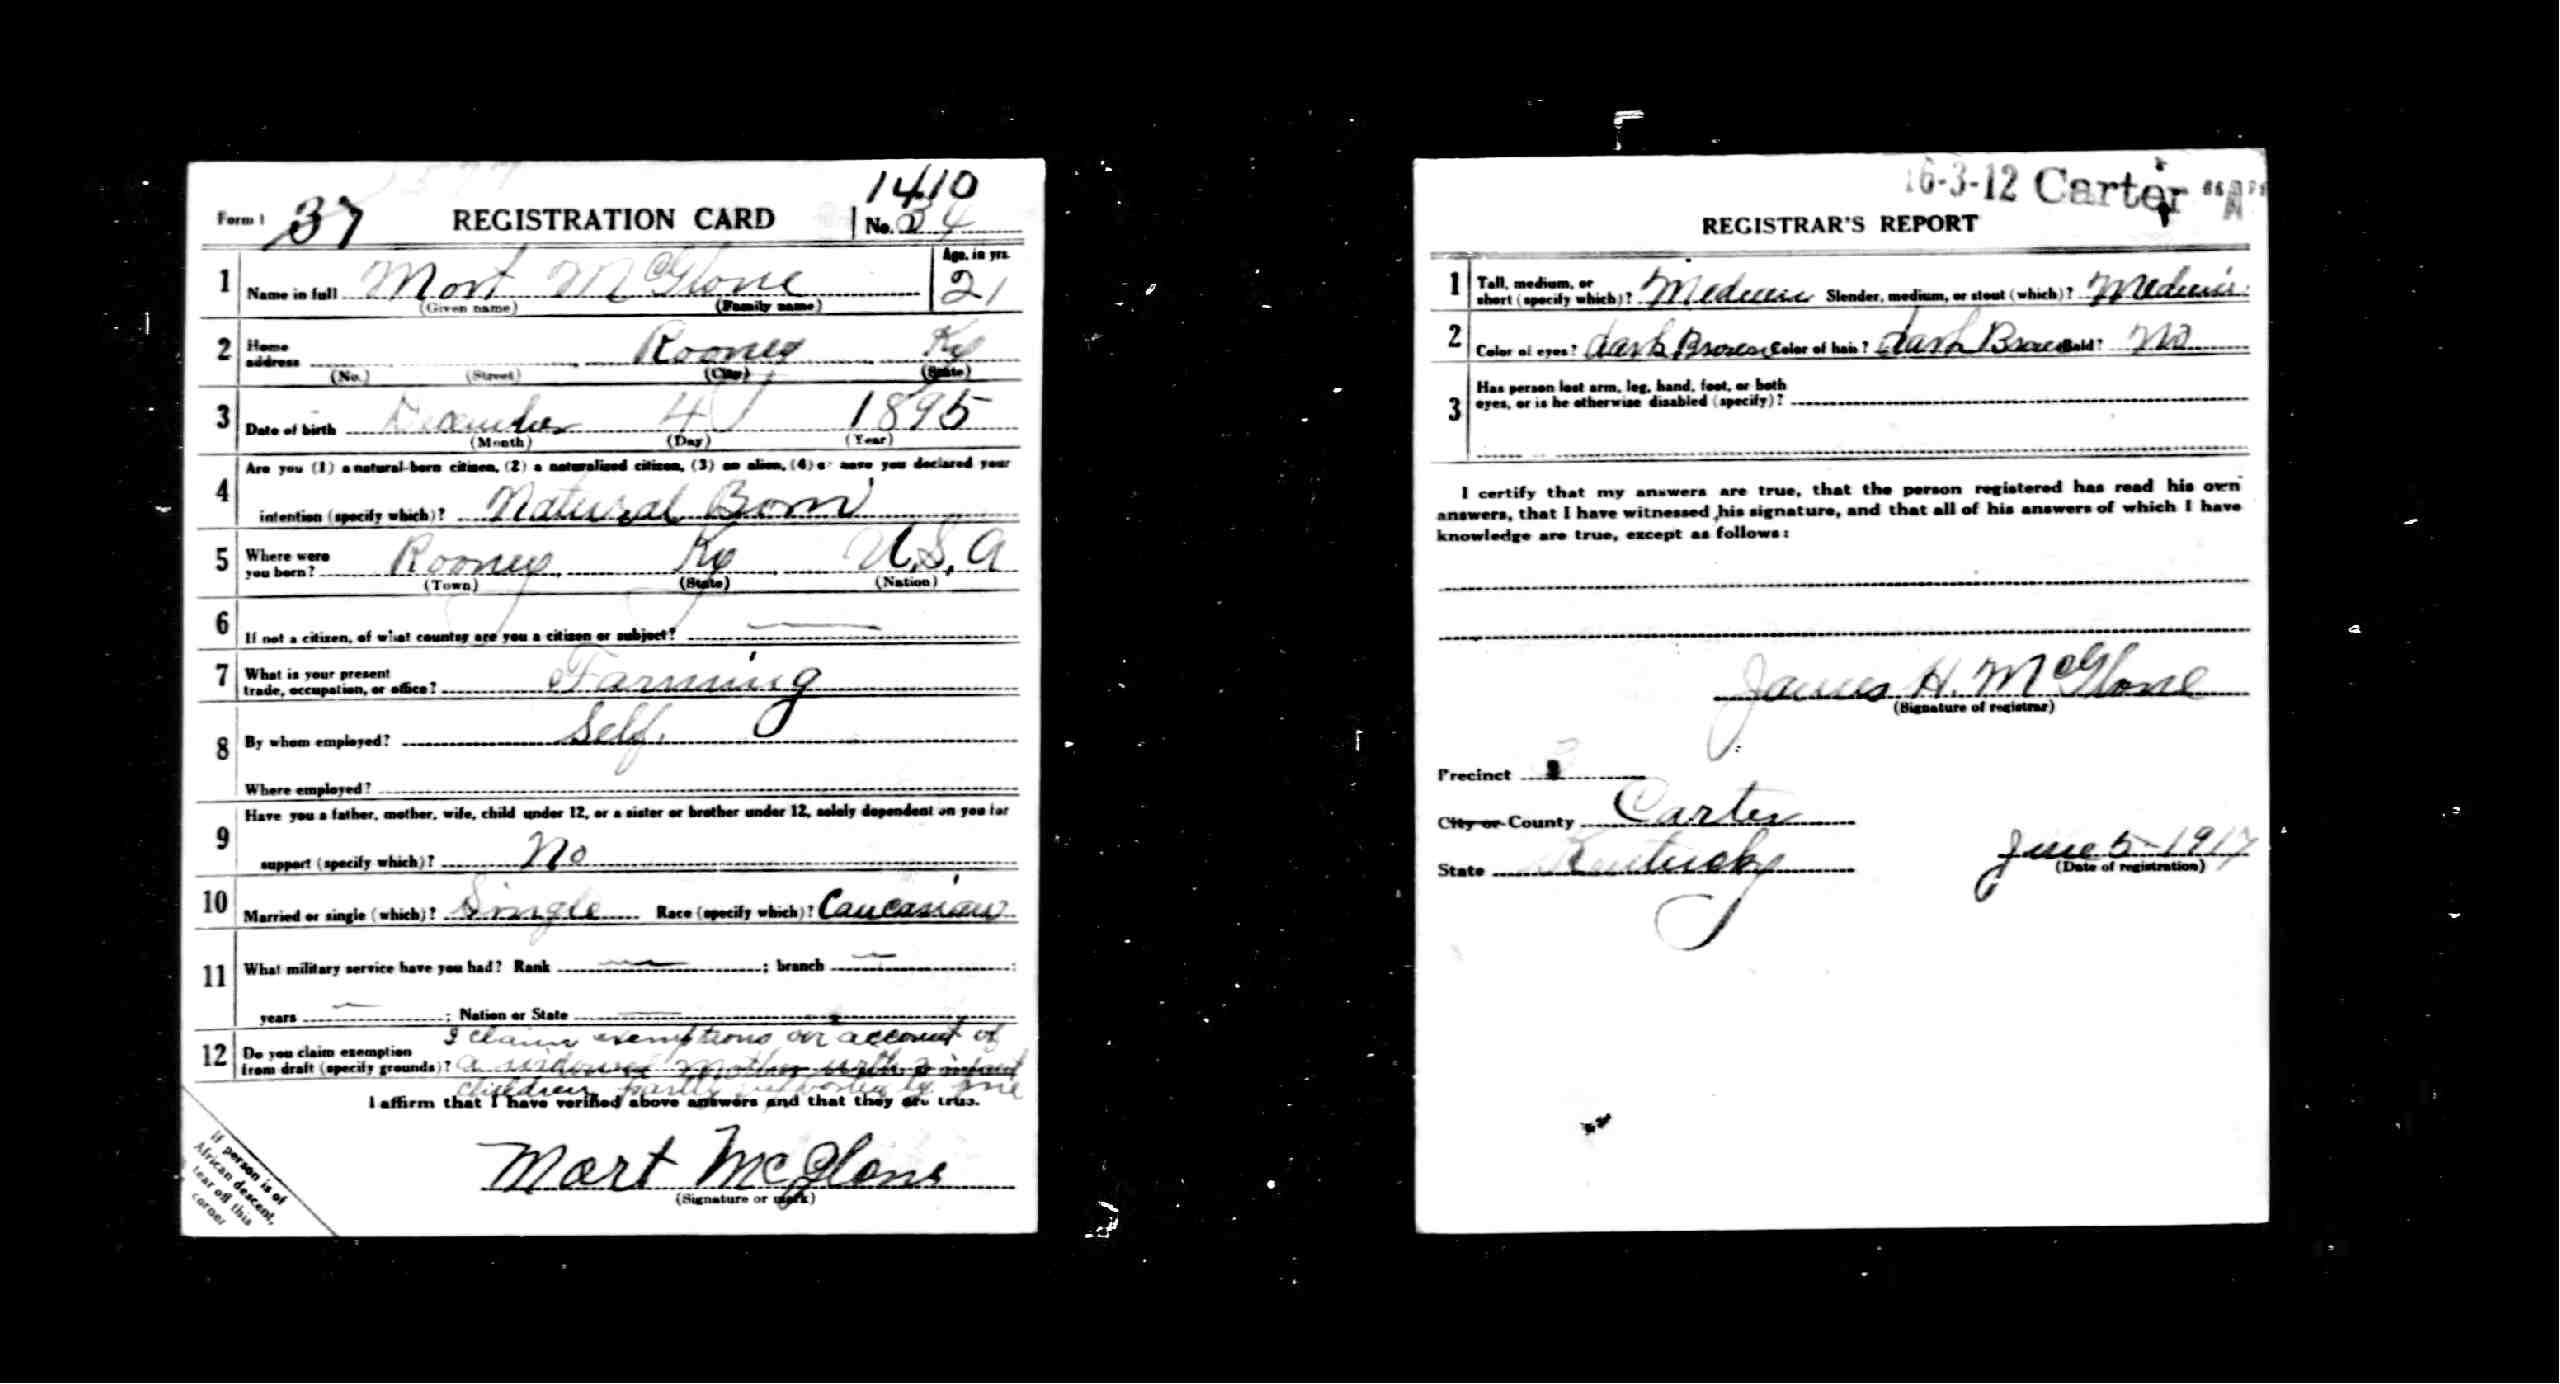 1410
Form 1 37 REGISTRATION CARD No. 34
1 Name in full Mort McGlone Age, in yrs. 21
(Given name) (Family name)
2 Home address Rooney Ky
(No.) (Street) (City) (State)
3 Date of birth December 4 1895
(Month) (Day) (Year)
Are you (1) a natural-born citizen, (2) a naturalized citizen, (3) an alien, (4) or have you declared your
4 intention (specify which)? Natural Born
5 Where were you born? Rooney Ky U.S.A
(Town) (State) (Nation)
6 If not a citizen, of what country are you a citizen or subject?
7 What is your present trade, occupation, or office? Farming
8 By whom employed? Self.
Where employed?
Have you a father, mother, wife, child under 12, or a sister or brother under 12, solely dependent on you for
9 support (specify which)? No
10 Married or single (which)? Single Race (specify which)? Caucasian
11 What military service have you had? Rank ; branch ;
years ; Nation or State
I claim exemptions on account of
12 Do you claim exemption from draft (specify grounds)? a widowed mother with infant
children partly supported by me
I affirm that I have verified above answers and that they are true.
Mort McGlone
(Signature or mark)
If person is of
African descent,
tear off this
corner
16-3-12 Carter "A"
REGISTRAR'S REPORT
1 Tall, medium, or short (specify which)? Medium Slender, medium, or stout (which)? Medium
2 Color of eyes? dark Brown Color of hair? dark Brown Bald? No
3 Has person lost arm, leg, hand, foot, or both
eyes, or is he otherwise disabled (specify)?
I certify that my answers are true, that the person registered has read his own
answers, that I have witnessed his signature, and that all of his answers of which I have
knowledge are true, except as follows:
James H. McGlone
(Signature of registrar)
Precinct
City or County Carter
State Kentucky June 5-1917
(Date of registration)